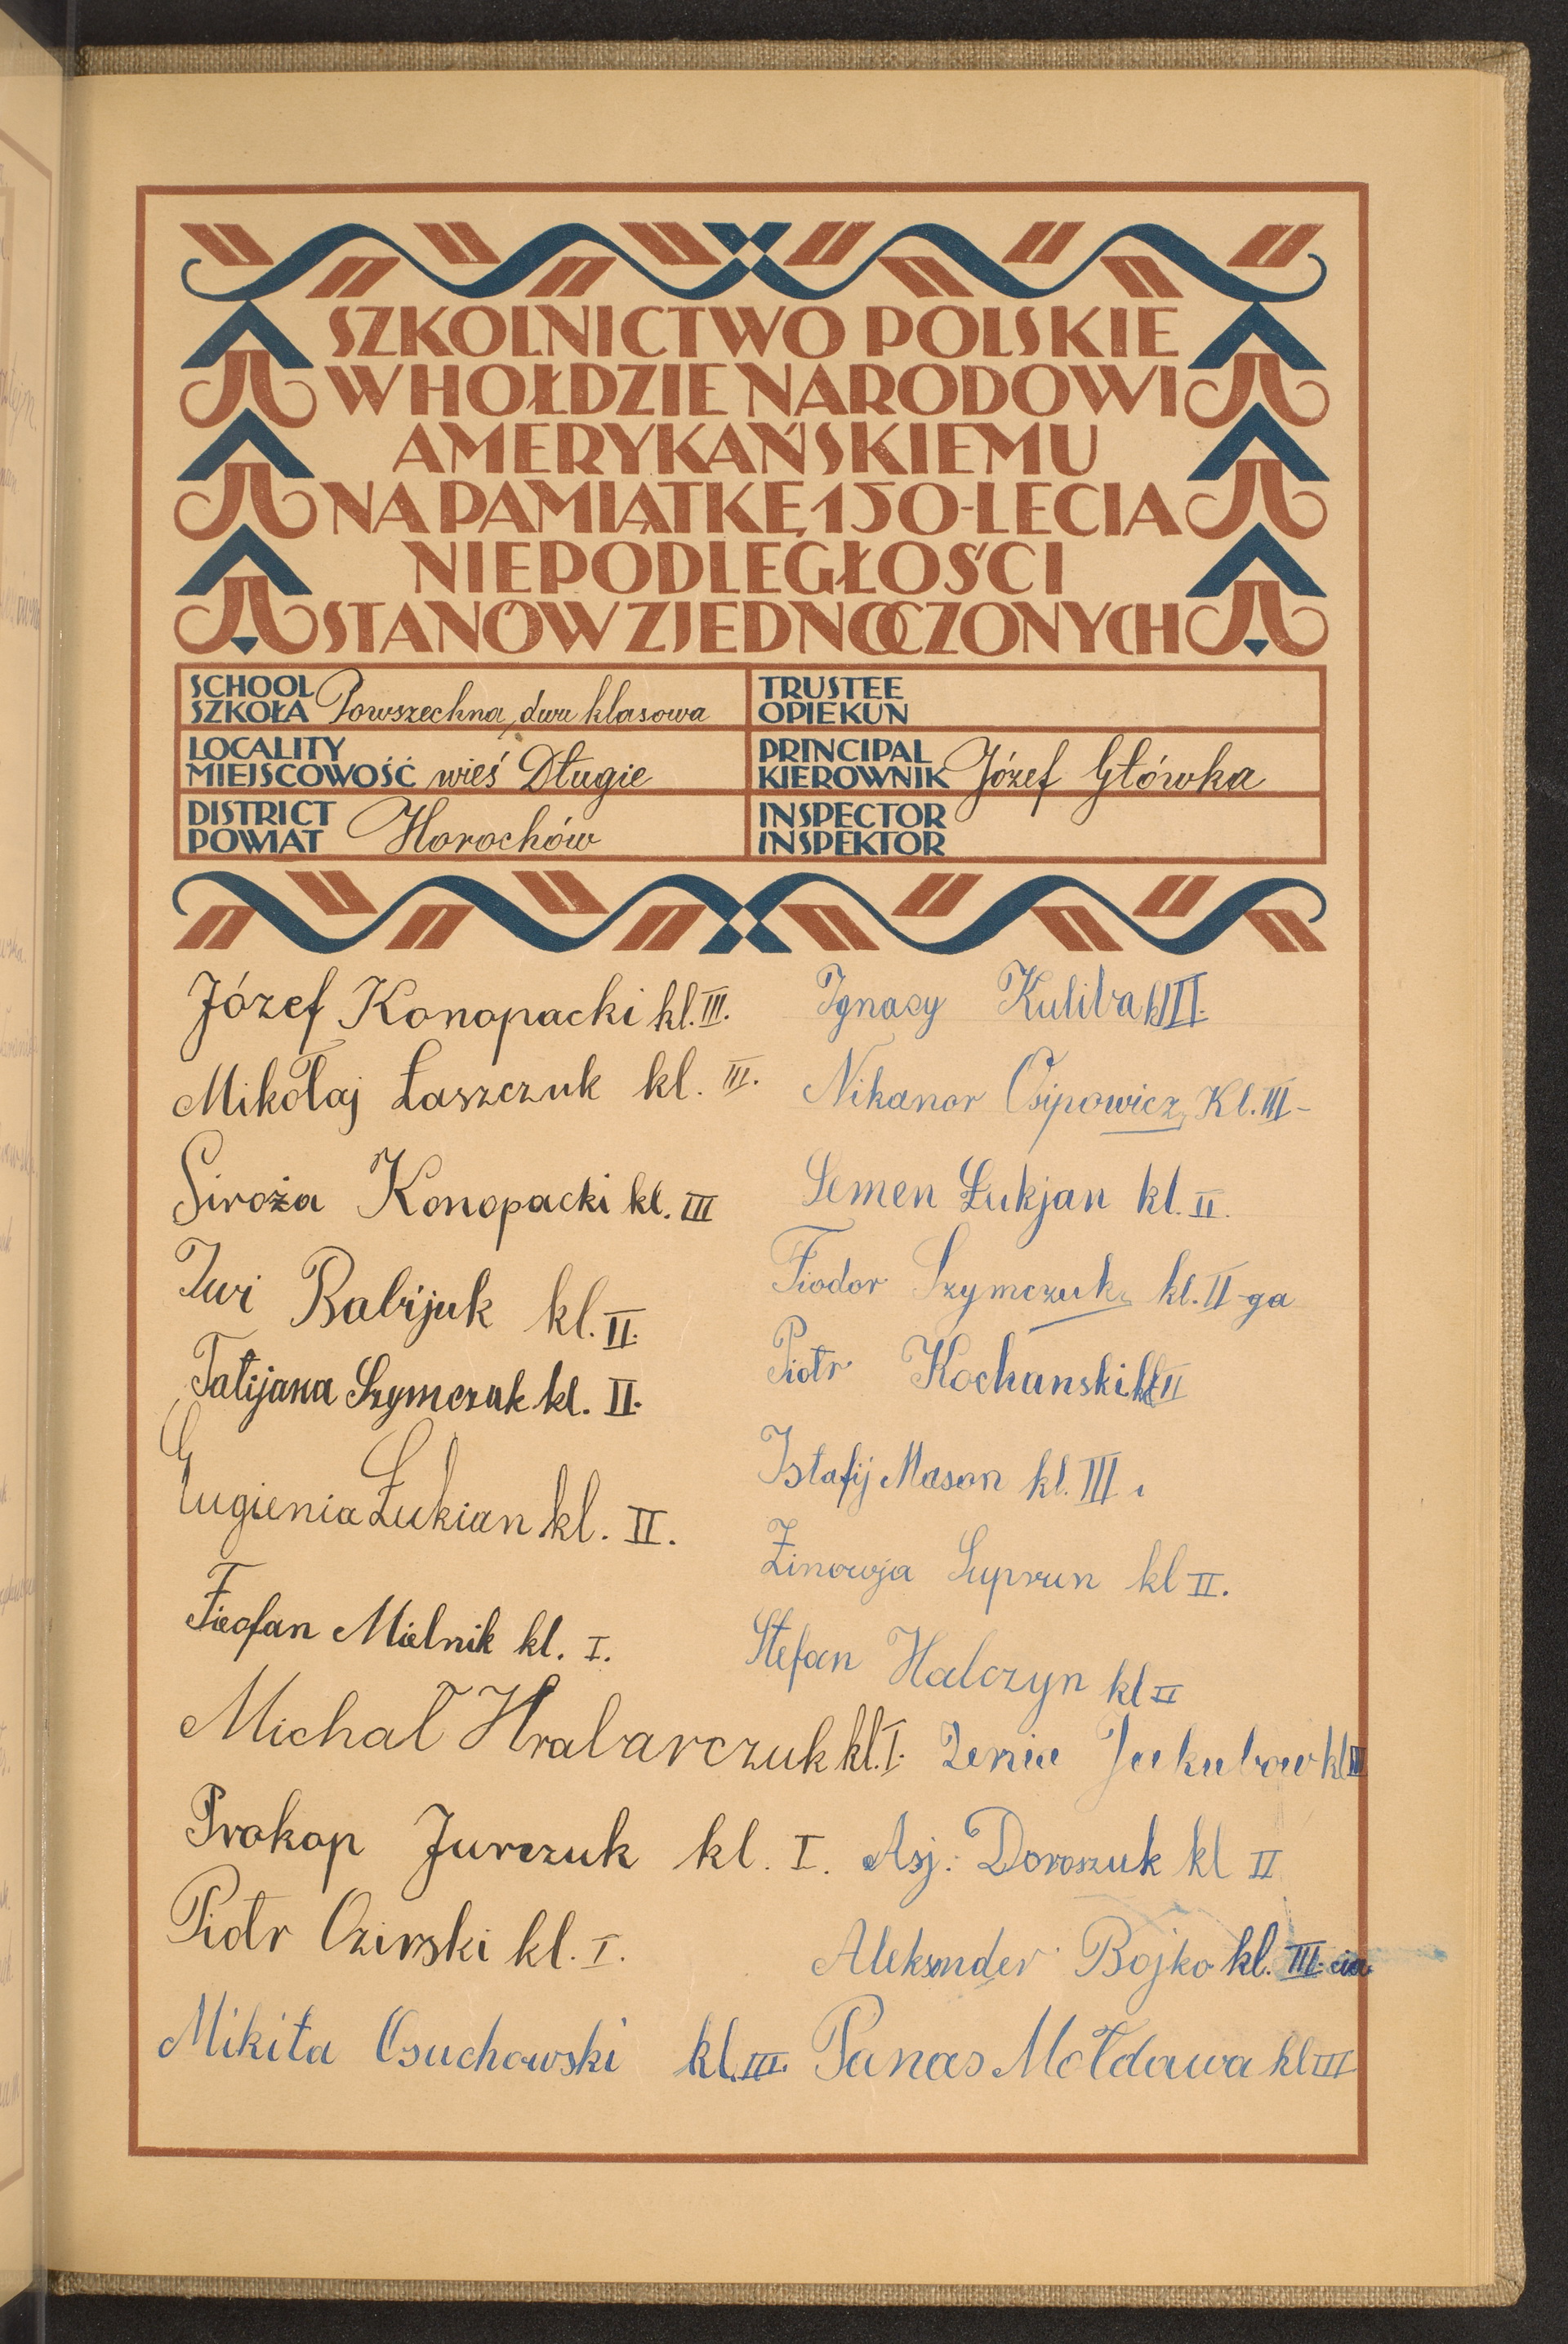 SZKOLNICTWO POLSKIE
W HOŁDZIE NARODOWI
AMERYKAŃSKIEMU
NA PAMIĄTKĘ 150-LECIA
NIEPODLEGŁOŚCI
STANÓW ZJEDNOCZONYCH
SCHOOL
SZKOŁA Powszechna, dwu klasowa
LOCALITY
MIEJSCOWOŚĆ wieś Długie
DISTRICT
POWIAT Horochów
TRUSTEE
OPIEKUN
PRINCIPAL
KIEROWNIK Józef Główka
INSPECTOR
INSPEKTOR
Józef Konopacki kl. III.
Mikołaj Łaszczuk kl. III.
Siroża Konopacki kl. III
Juri Babijuk kl. II.
Tatijana Szymczuk kl. II.
Eugienia Łukian kl. II.
Fieofan Mielnik kl. I.
Michał Hrabarczuk kl. I.
Prokop Jurczuk kl. I.
Piotr Ozirski kl. I.
Mikita Osuchowski kl. III.
Ignacy Kuliba kl II.
Nikanor Osipowicz, Kl. III-
Semen Łukjan kl. II.
Fiodor Szymczuk kl. II-ga
Piotr Kochanski kl II
Istafij Mason kl. III.
Zinowja Suprun kl II.
Stefan Halczyn kl II
Zenia Jakubow kl III
Asj. Doroszuk kl II
Aleksander Bojko kl. III-cia
Panas Mołdawa kl III